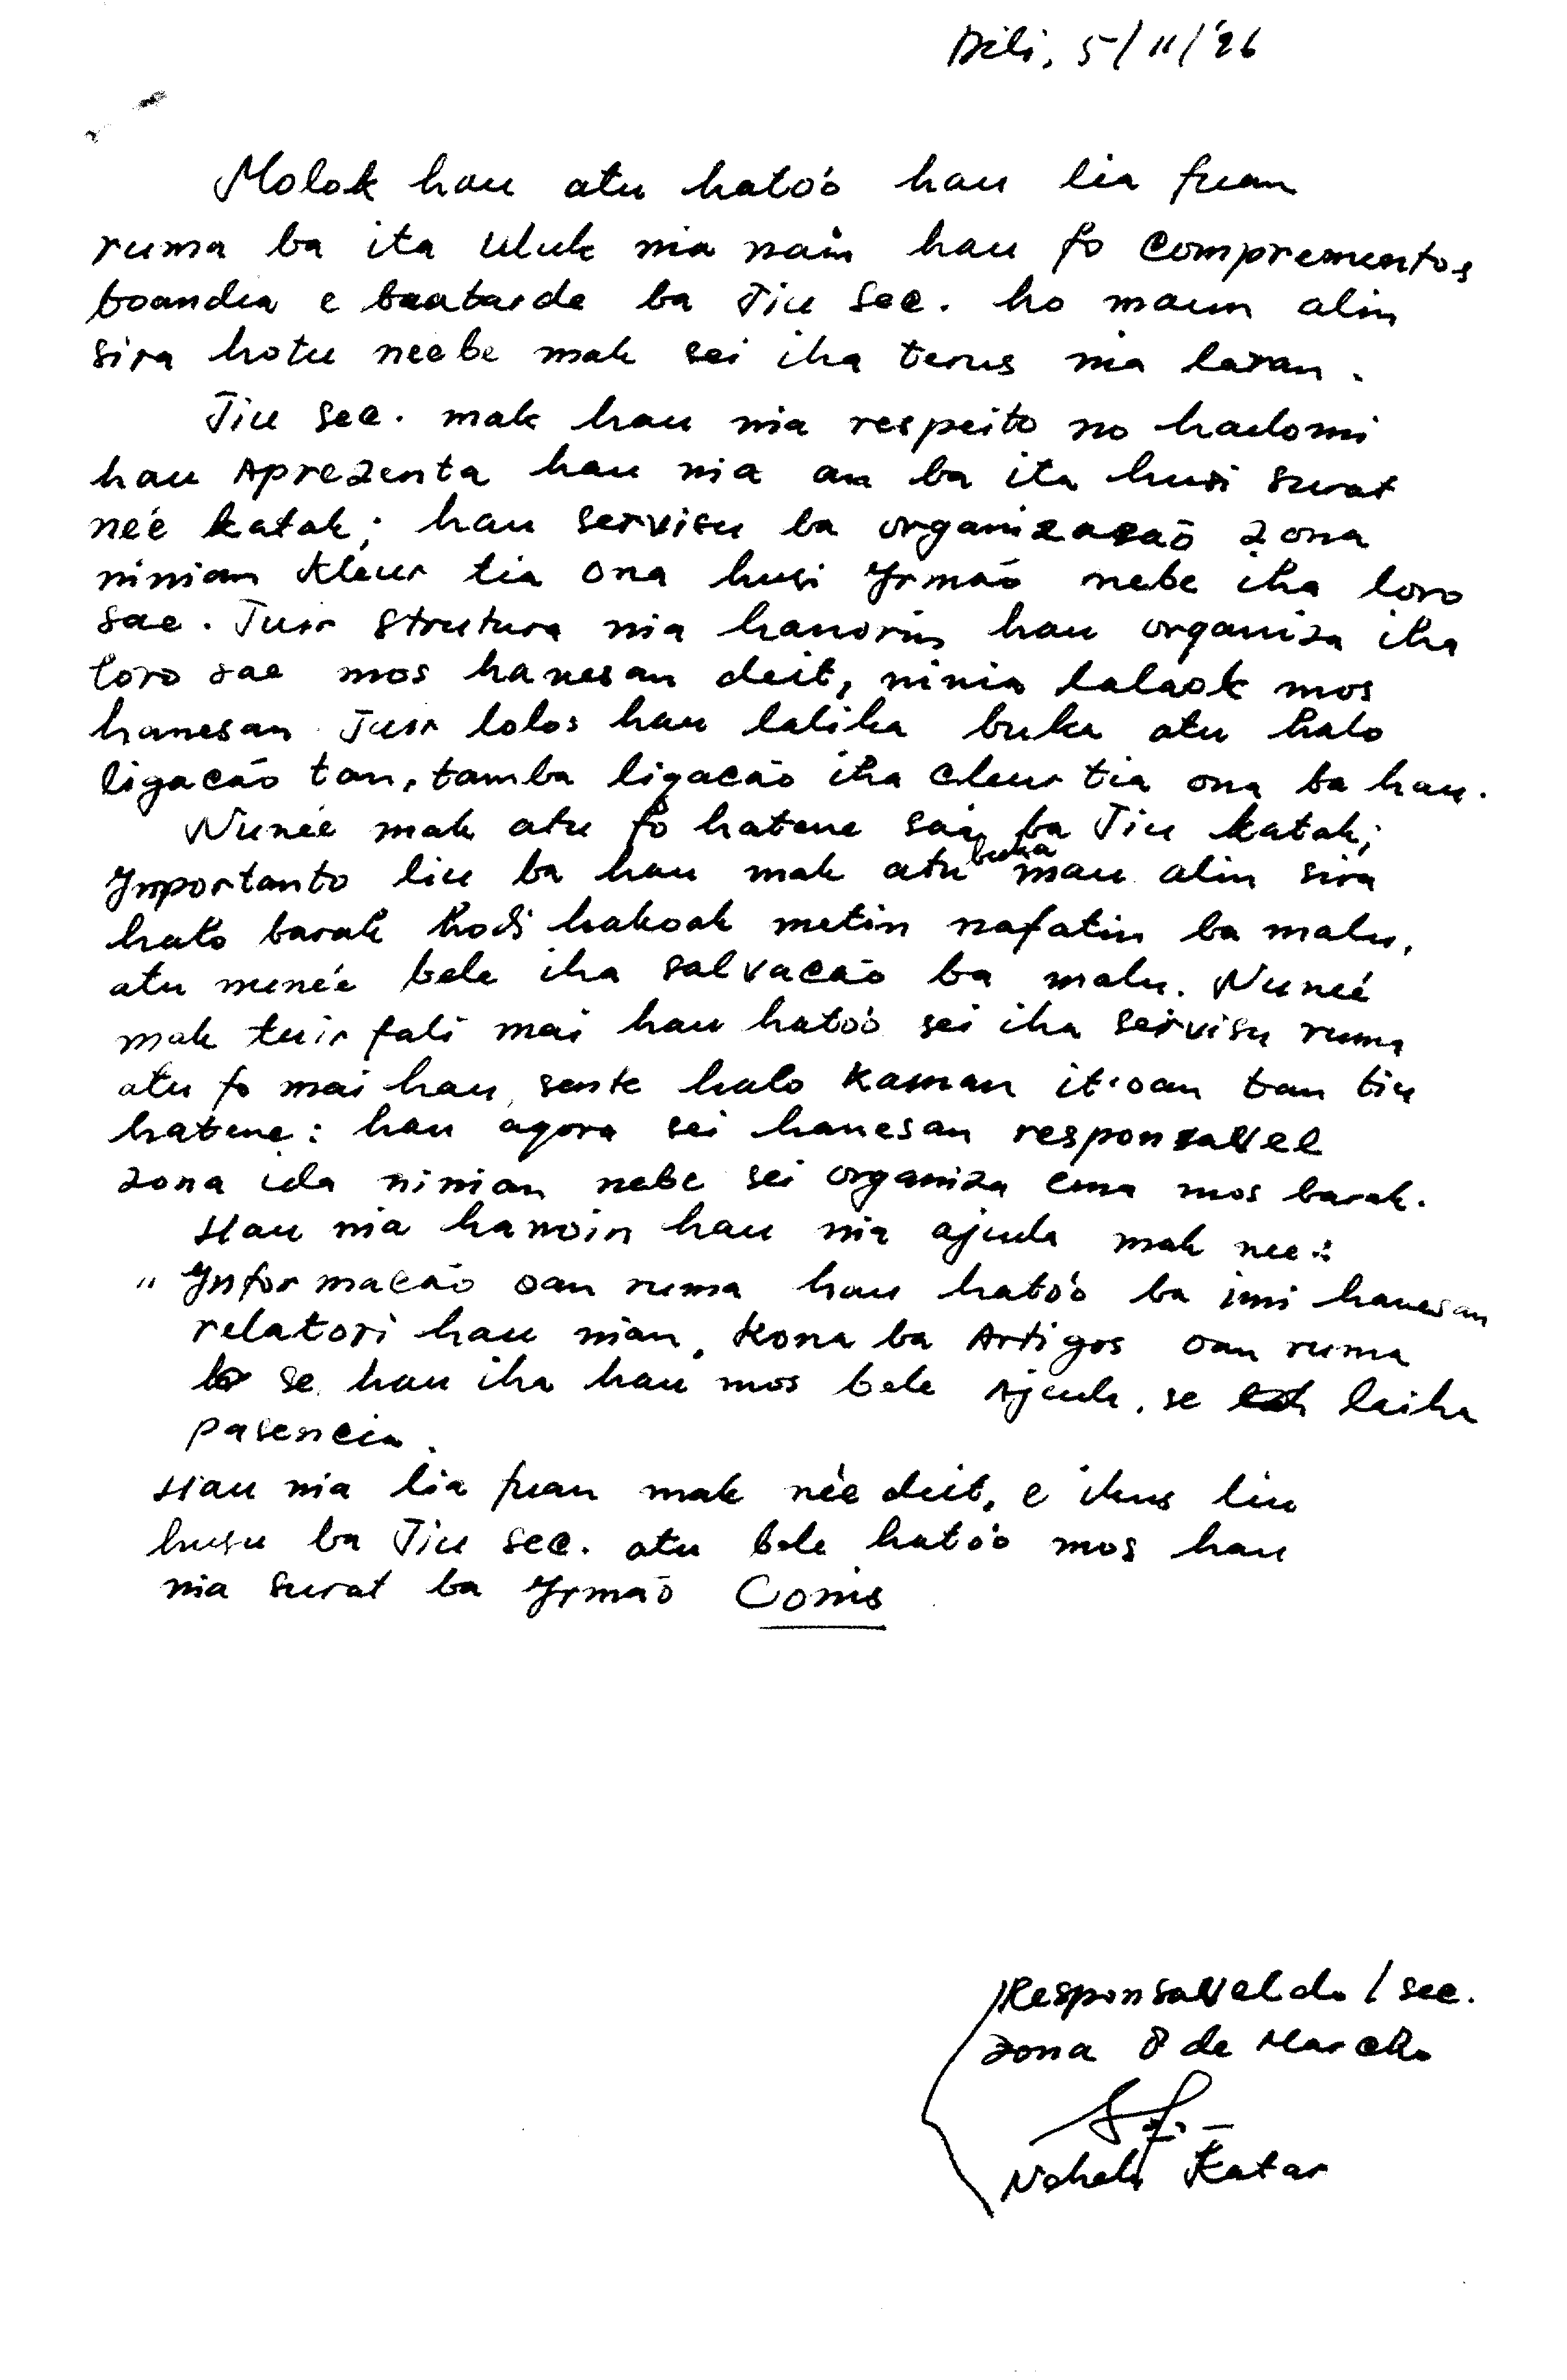 Dili, 5/11/'96
Molok hau atu hatóo hau lia fuan
ruma ba ita uluk nia nain hau fo comprementos
boandia e boatarde ba Tiu Sec. ho maun alin
sira hotu neebe mak sei iha terus nia laran.
Tiu Sec. mak hau nia respeito no hadomi
hau Aprezenta hau nia an ba ita husi surat
neé katak; hau servisu ba organizacaõ zona
ninian kleur tia ona husi Yrmaõ nebe iha loro
sae. Tuir strutura nia hanorin hau organiza iha
loro sae mos hanesan deit, ninia lalaok mos
hanesan. Tuir lolos hau lalika buka atu halo
ligacão tan, tamba ligacão iha cleur tia ona ba hau.
Nuneé mak atu fo hatene sai ba Tiu katak;
Ymportanto liu ba hau mak atu buka mau alin sira
halo barak hodi hakoak metin nafatin ba malu,
atu nuneé bele iha salvacão ba malu. Nuneé
mak tuir fali mai hau hatóo sei iha servisu ruma
atu fo mai hau, sente halo kaman it'oan tan tiu
hatene: hau agora sei hanesan responsavel
zona ida ninian nebe sei organiza ema mos barak.
Hau nia hanoin hau nia ajuda mak nee:
" Ynformacão oan ruma hau hatóo ba imi hanesan
relatori hau nian, kona ba Artigos oan ruma
se hau iha hau mos bele Ajuda, se laiha
pasencia.
Hau nia lia fuan mak neé deit, e ikus liu
husu ba Tiu Sec. atu bele hatóo mos hau
nia surat ba Yrmaõ Conis
Responsavel do / sec.
zona 8 de Marcho
Katar